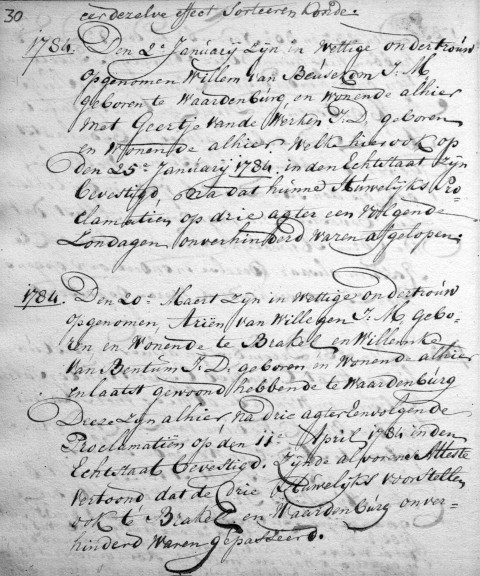 30
eer dezelve effect Sorteeren Konde.
1784. Den 2e January Zyn in Wettige ondertrouw
opgenomen Willem Van Beusekom J. M.
geboren te Waardenburg, en Wonende alhier
met Geertje vande Werken J. D. geboren
en Wonende alhier, Welke hier ook op
Den 25e January 1784. in den Echtstaat Zyn
bevestigd, na dat hunne Huwelyks Pro-
clamatien op drie agter een Volgende
Zondagen onverhinderd Waren afgelopen.
1784. Den 20e Maert Zyn in Wettige ondertrouw
opgenomen, Ariën van Willegen J. M. gebo-
ren en Wonende te Brakel en Willemke
Van Bentum J. D. geboren en Wonende alhier
en laatst gewoond hebbende te Waardenburg
Deeze Zyn alhier, na drie agter Een volgende
Proclamatiën op den 11e April 1784 in den
Echtstaat bevestigd. Zynde alvorens Atteste
vertoond dat de drie Huwelyks voorstellen
ook te Brakel en Waardenburg onver-
hinderd Waren gepasseerd.